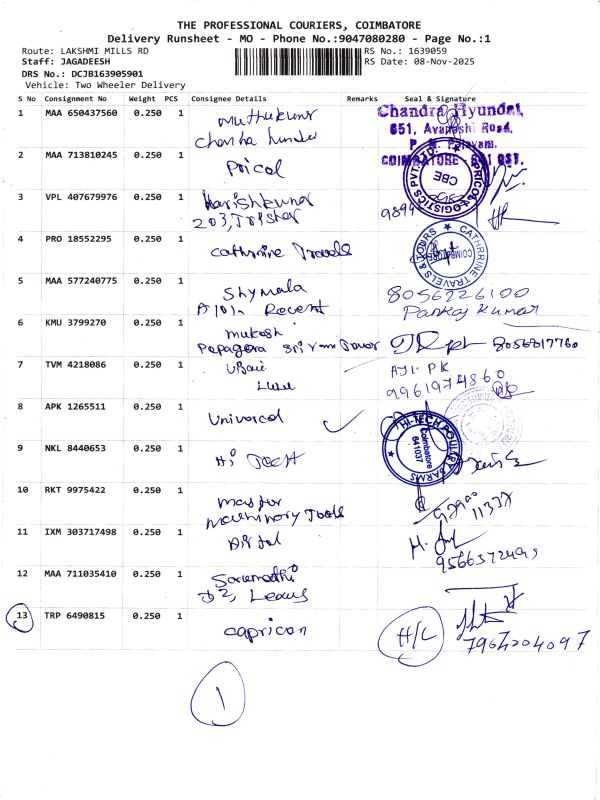 THE PROFESSIONAL COURIERS, COIMBATORE
Delivery Runsheet - MO - Phone No.:9047080280 - Page No.:1
Route: LAKSHMI MILLS RD RS No.: 1639059
Staff: JAGADEESH RS Date: 08-Nov-2025
DRS No.: DCJB163905901
Vehicle: Two Wheeler Delivery
S No Consignment No Weight PCS Consignee Details Remarks Seal & Signature
1 MAA 650437560 0.250 1 Muthukumar
Chandra Hyundai,
851, Avanashi Road,
P. N. Palayam.
2 MAA 713810245 0.250 1 Pricol
COIMBATORE
PRICOL LOGISTICS PVT. LTD.
CBE
3 VPL 407679976 0.250 1 Harishkumar
203, Trishar
9894
4 PRO 18552295 0.250 1 Cathrrine Travels
CATHRRINE TRAVELS & TOURS
COIMBATORE
5 MAA 577240775 0.250 1 Shymala 8056226100
Recent Pankaj Kumar
6 KMU 3799270 0.250 1 Mukesh 8056817760
7 TVM 4218086 0.250 1 AJI. PK
Lulu 9961974860
8 APK 1265511 0.250 1 Universal
9 NKL 8440653 0.250 1 Hi Tech
HI-TECH POULTRY FARMS
Coimbatore
641037
10 RKT 9975422 0.250 1 Master
Machinory Tools
11 IXM 303717498 0.250 1
12 MAA 711035410 0.250 1
13 TRP 6490815 0.250 1 Capricon H/L
7964204097
1